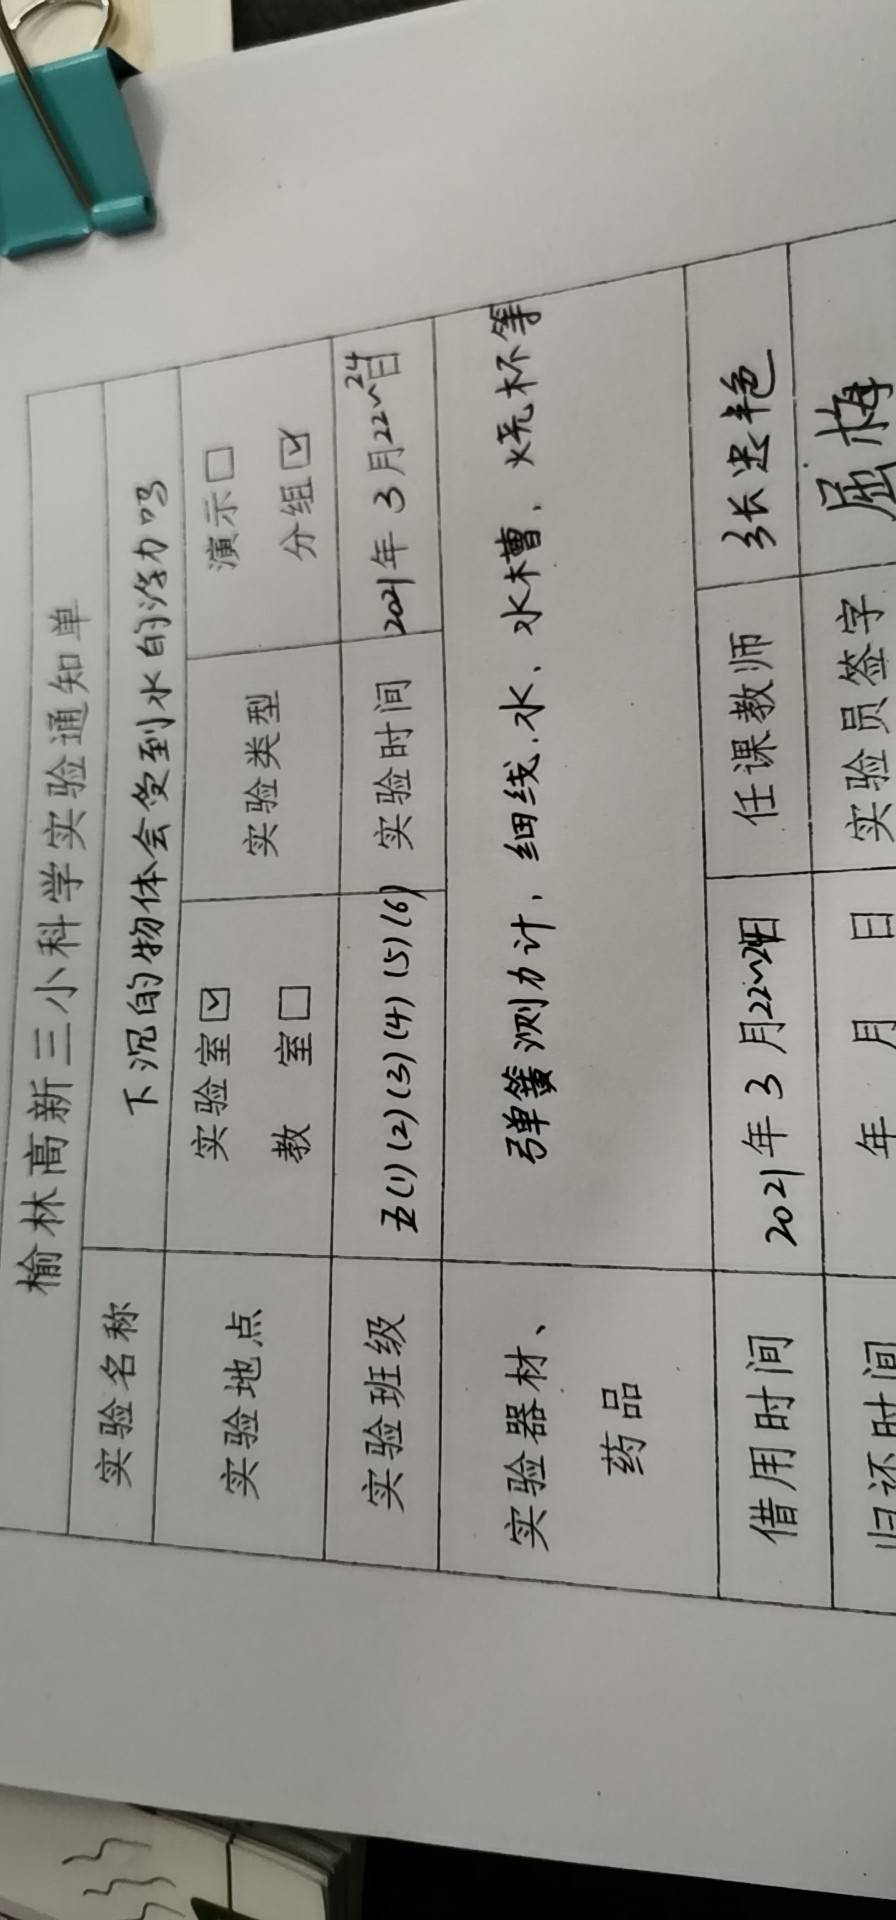 榆林高新三小科学实验通知单
实验名称 下沉的物体会受到水的浮力吗
实验地点 实验室☑ 教 室□ 实验类型 演示□ 分组☑
实验班级 五(1)(2)(3)(4)(5)(6) 实验时间 2021年3月22~24日
实验器材、药品 弹簧测力计、细线、水、水槽、烧杯等
借用时间 2021年3月22~24日 任课教师 张忠艳
归还时间 年 月 日 实验员签字 屈梅